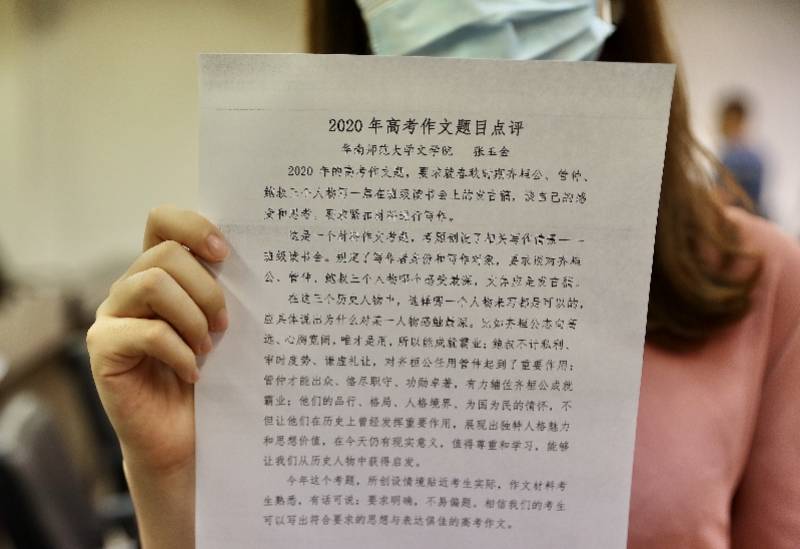 2020 年高考作文题目点评
华南师范大学文学院 张玉金
2020 年的高考作文题，要求就春秋时期齐桓公、管仲、
鲍叔三个人物写一篇在班级读书会上的发言稿，谈自己的感
受和思考，要求紧扣材料进行写作。
这是一个材料作文考题，考题创设了相关写作情景——
班级读书会。规定了写作者身份和写作对象，要求谈对齐桓
公、管仲、鲍叔三个人物哪个感受最深，文体应是发言稿。
在这三个历史人物中，选择哪一个人物来写都是可以的，
应具体说出为什么对某一人物感触最深。比如齐桓公志向高
远、心胸宽阔，唯才是用，所以能成就霸业；鲍叔不计私利、
审时度势、谦虚礼让，对齐桓公任用管仲起到了重要作用；
管仲才能出众、恪尽职守、功勋卓著，有力辅佐齐桓公成就
霸业；他们的品行、格局、人格境界、为国为民的情怀，不
但让他们在历史上曾经发挥重要作用，展现出独特人格魅力
和思想价值，在今天仍有现实意义，值得尊重和学习，能够
让我们从历史人物中获得启发。
今年这个考题，所创设情境贴近考生实际，作文材料考
生熟悉，有话可说；要求明确，不易偏题。相信我们的考生
可以写出符合要求的思想与表达俱佳的高考作文。